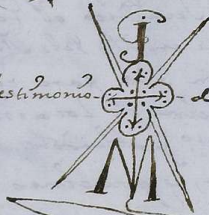 testimonio d